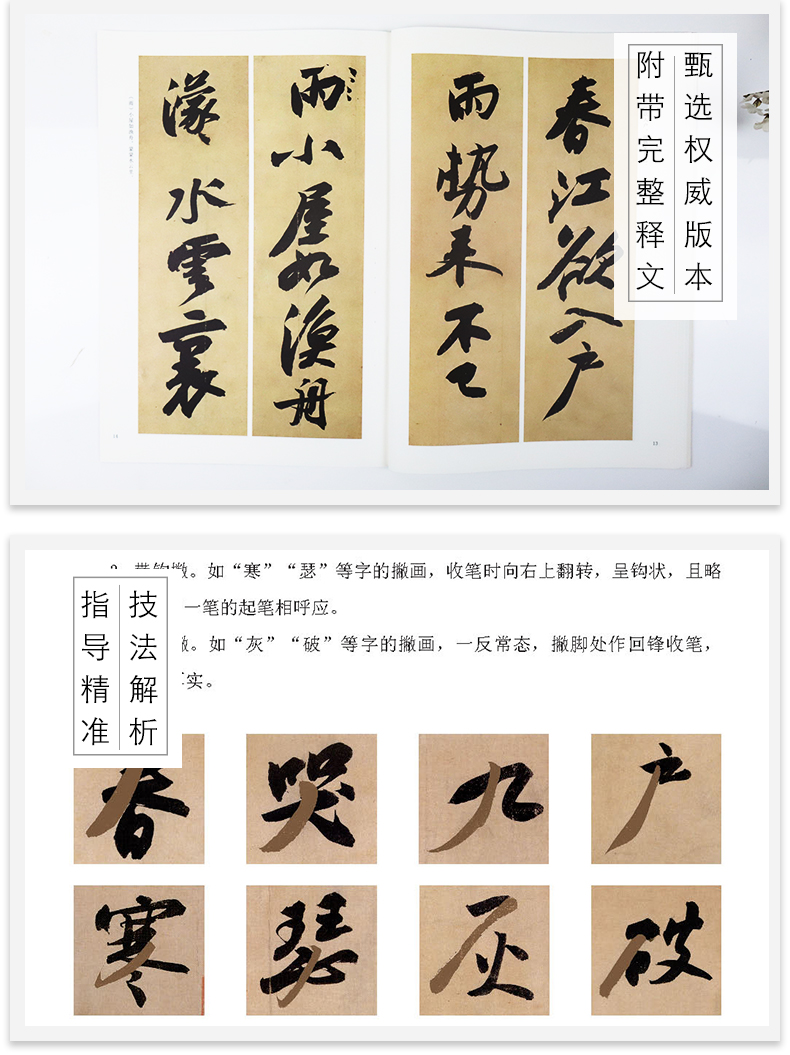 甄选权威版本
附带完整释文
春江欲入户
雨势来不已
雨小屋如渔舟
濛水雲裏
13
技法解析
指导精准
带钩撇。如“寒”“瑟”等字的撇画，收笔时向右上翻转，呈钩状，且略
一笔的起笔相呼应。
撇。如“灰”“破”等字的撇画，一反常态，撇脚处作回锋收笔，
实。
春 哭 九 户
寒 瑟 灰 破